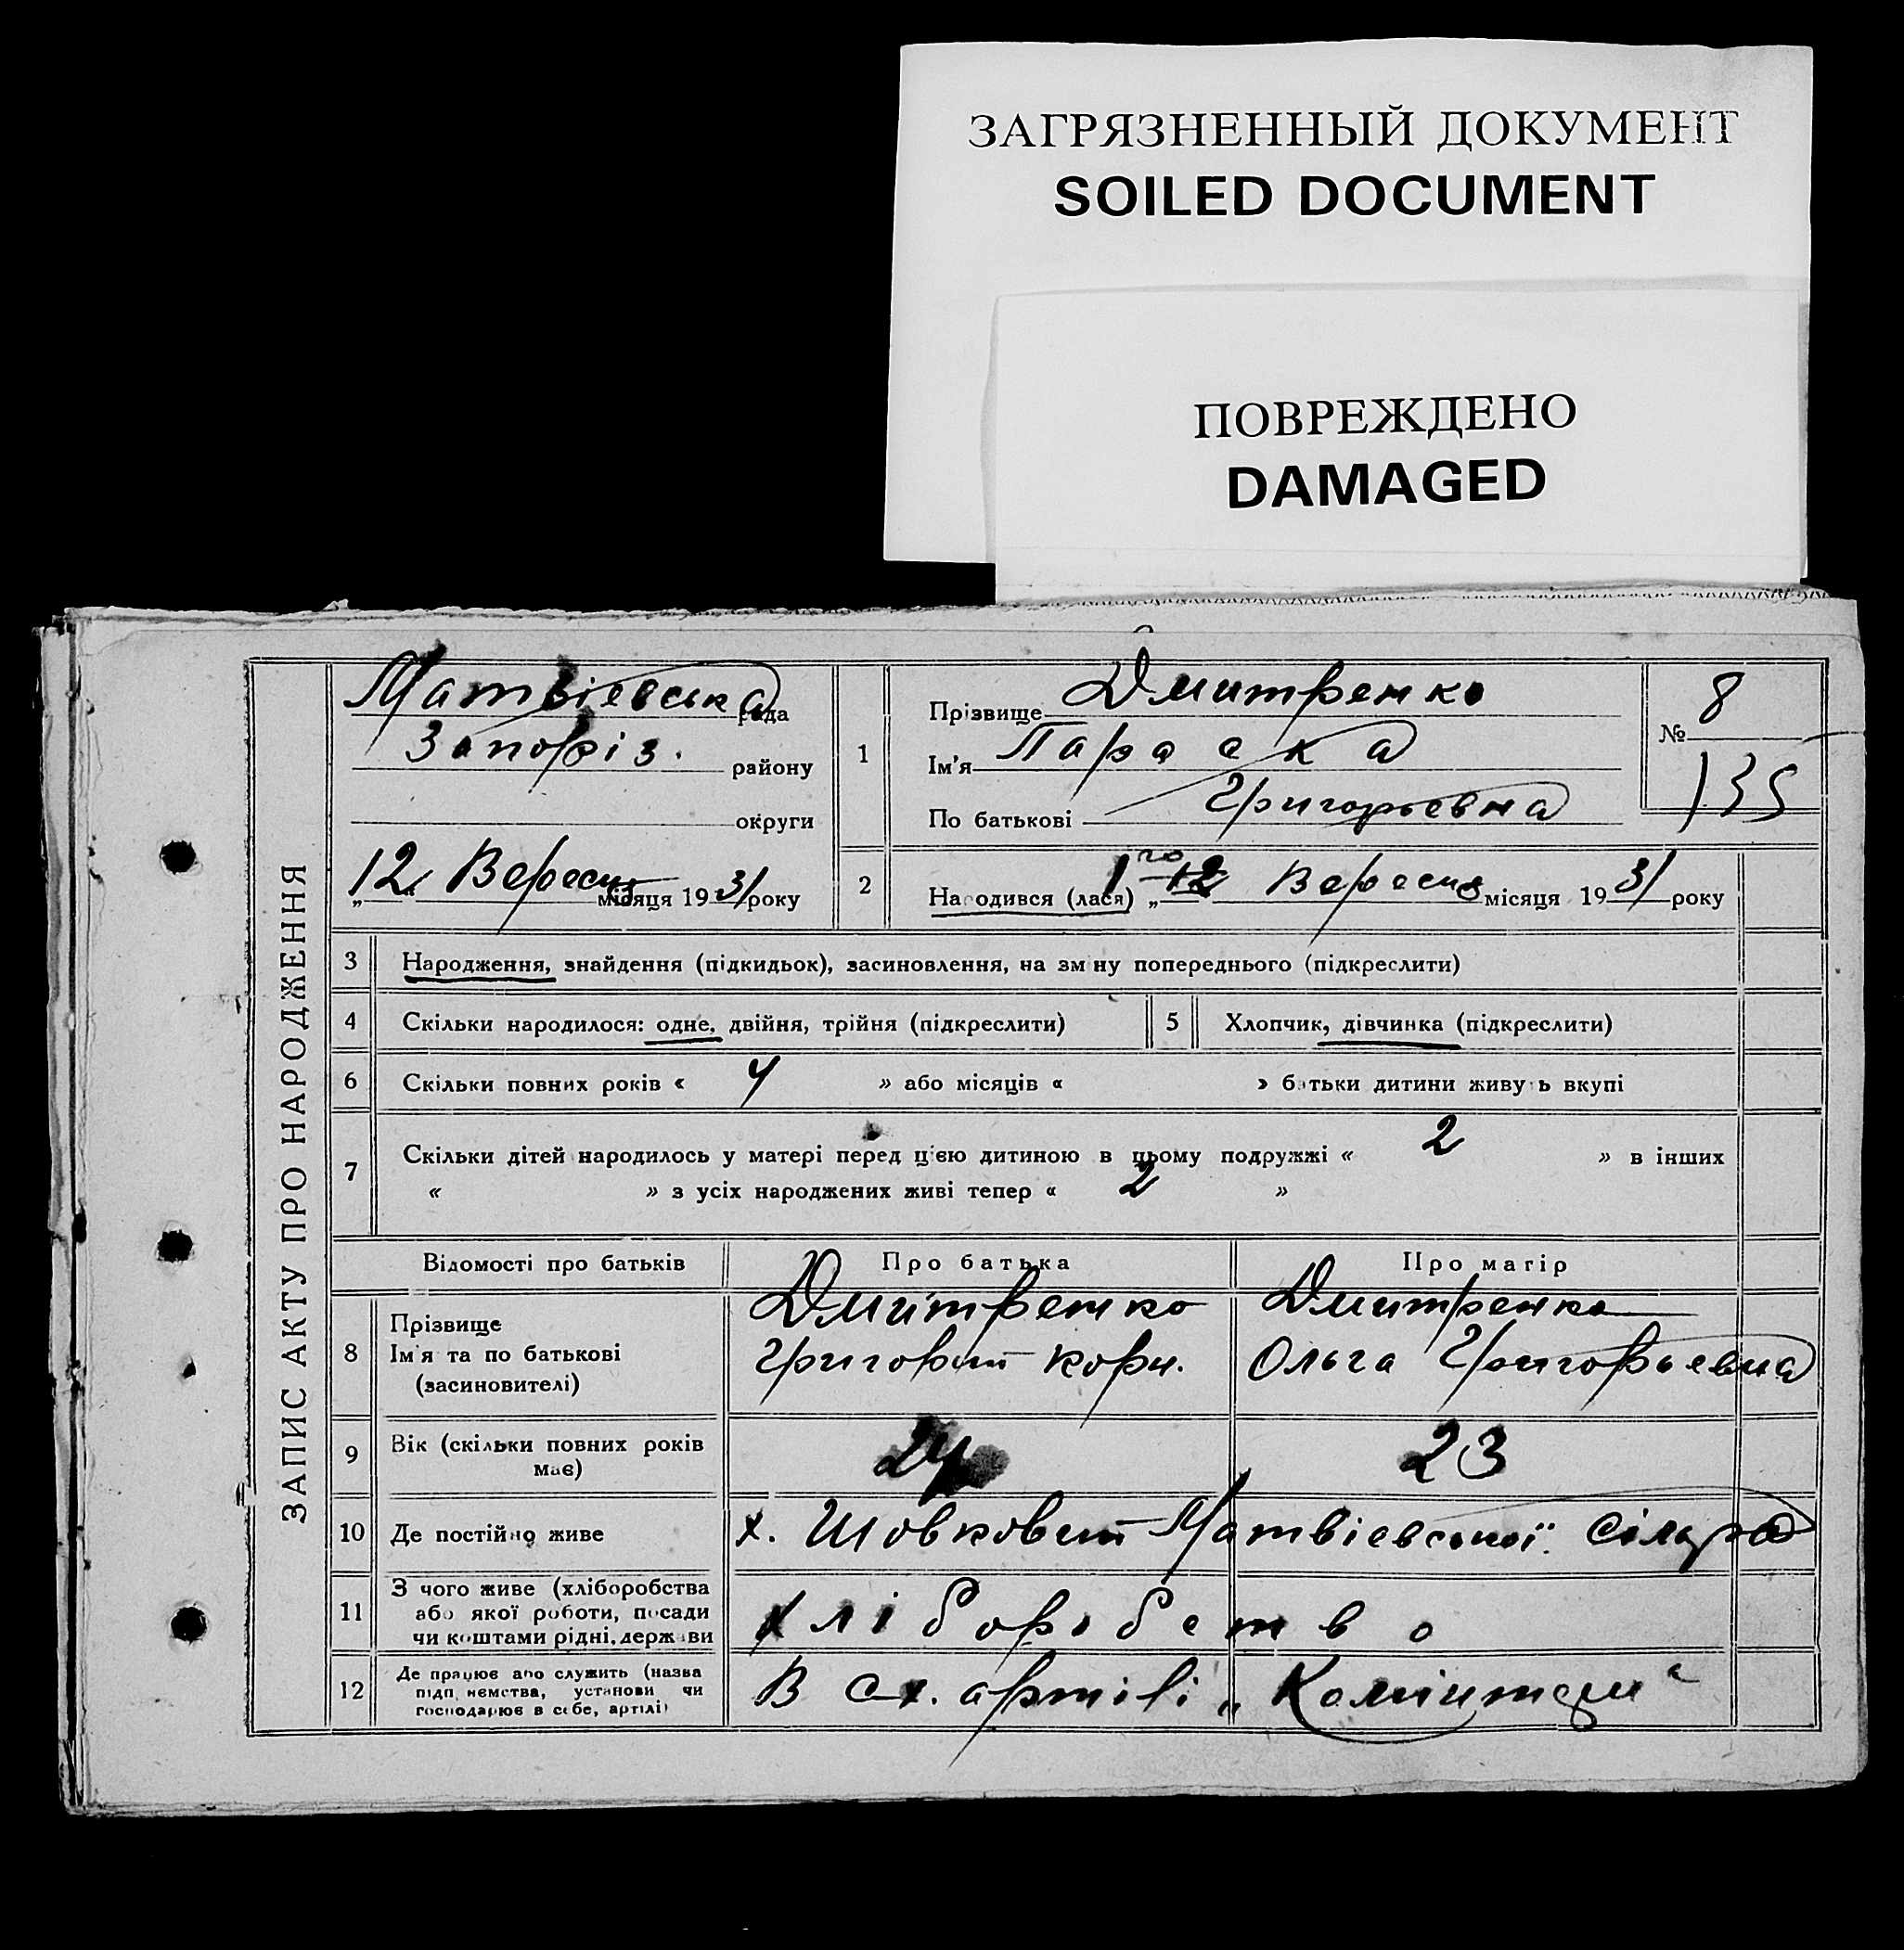 ЗАГРЯЗНЕННЫЙ ДОКУМЕНТ
SOILED DOCUMENT
ПОВРЕЖДЕНО
DAMAGED
ЗАПИС АКТУ ПРО НАРОДЖЕННЯ
Матвієвська рада
Запоріз. району
округи
12 Вересня місяця 1931 року
1
Прізвище Дмитренко
Ім'я Параска
По батькові Григорьевна
№ 8
135
2
Народився (лася) „ 1го Вересня місяця 1931 року
3 Народження, знайдення (підкидьок), засиновлення, на зміну попереднього (підкреслити)
4 Скільки народилося: одне, двійня, трійня (підкреслити)
5 Хлопчик, дівчинка (підкреслити)
6 Скільки повних років « 4 » або місяців « » батьки дитини живуть вкупі
7 Скільки дітей народилось у матері перед цією дитиною в цьому подружжі « 2 » в інших
« » з усіх народжених живі тепер « 2 »
Відомості про батьків Про батька Про матір
8 Прізвище
Ім'я та по батькові
(засиновителі)
Дмитренко
Григорий Корн.
Дмитренко
Ольга Григорьевна
9 Вік (скільки повних років
має)
24 23
10 Де постійно живе х. Шовковий Матвієвської сільрад
11 З чого живе (хліборобства
або якої роботи, посади
чи коштами рідні, держави
хліборобство
12 Де працює або служить (назва
підприємства, установи чи
господарює в себе, артілі)
В с.х. артілі „Комінтерн“